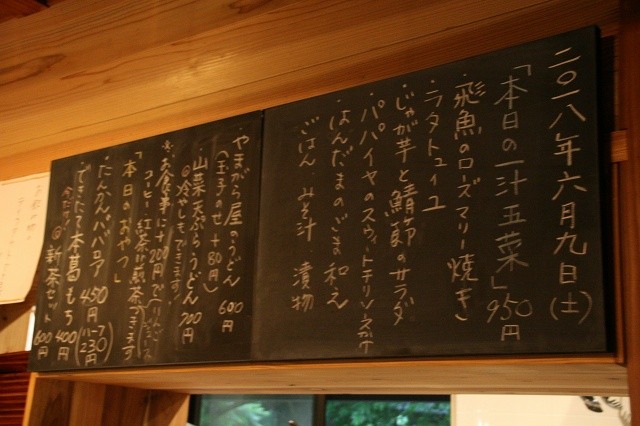 二〇一八年六月九日(土)
「本日の一汁五菜」950円
・飛魚のローズマリー焼き
・ラタトゥイユ
・じゃが芋と鯖節のサラダ
・パパイヤのスウィートチリソース
・はんだまのごま和え
ごはん、みそ汁 漬物
・やまがら屋のうどん 600円
(玉子のせ +80円)
・山菜天ぷらうどん 700円
◎冷やしもできます!
※お食事に+200円で(りんごジュース
コーヒー、紅茶、煎茶)つきます
「本日のおやつ」
・たんかんババロア 450円(ハーフ230円)
・できたて本葛もち 400円
新茶セット 600円